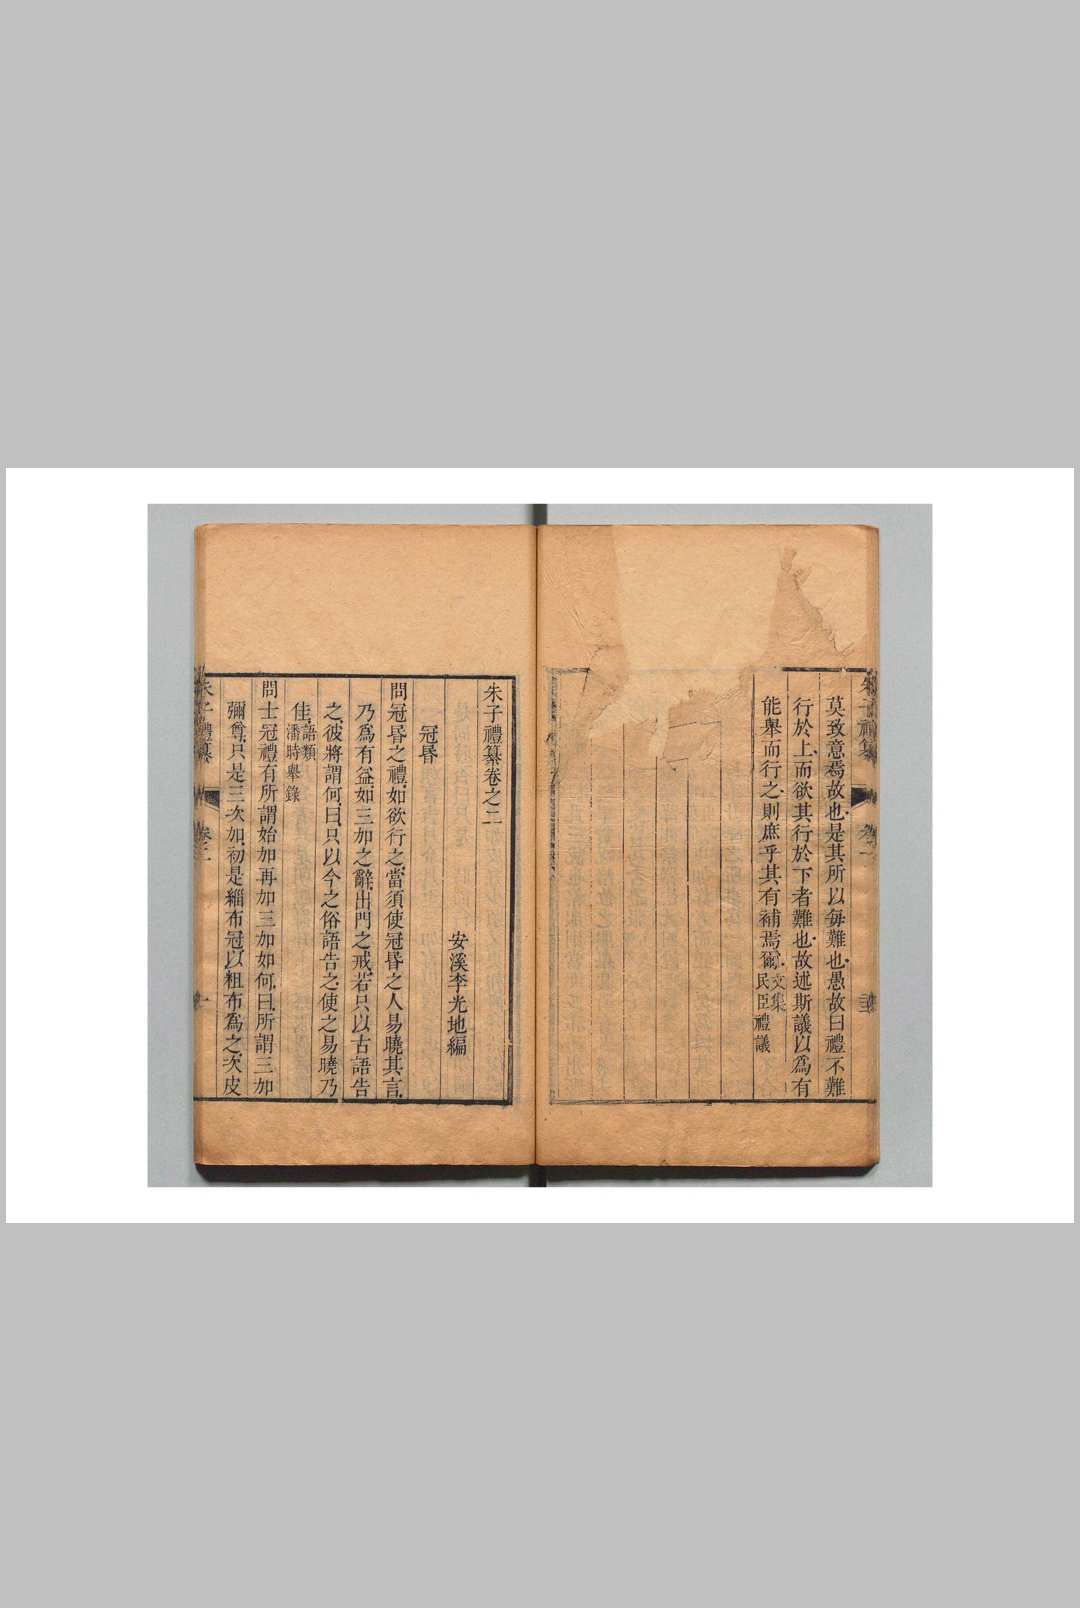 莫致意焉故也是其所以每難也愚故曰禮不難
行於上而欲其行於下者難也故述斯議以爲有
能舉而行之則庶乎其有補焉爾文集
民臣禮議
朱子禮纂卷之二
安溪李光地編
冠昬
問冠昬之禮如欲行之當須使冠昬之人易曉其言
乃爲有益如三加之辭出門之戒若只以古語告
之彼將謂何曰只以今之俗語告之使之易曉乃
佳語類
潘時舉錄
問士冠禮有所謂始加再加三加如何曰所謂三加
彌尊只是三次加初是緇布冠以粗布爲之次皮